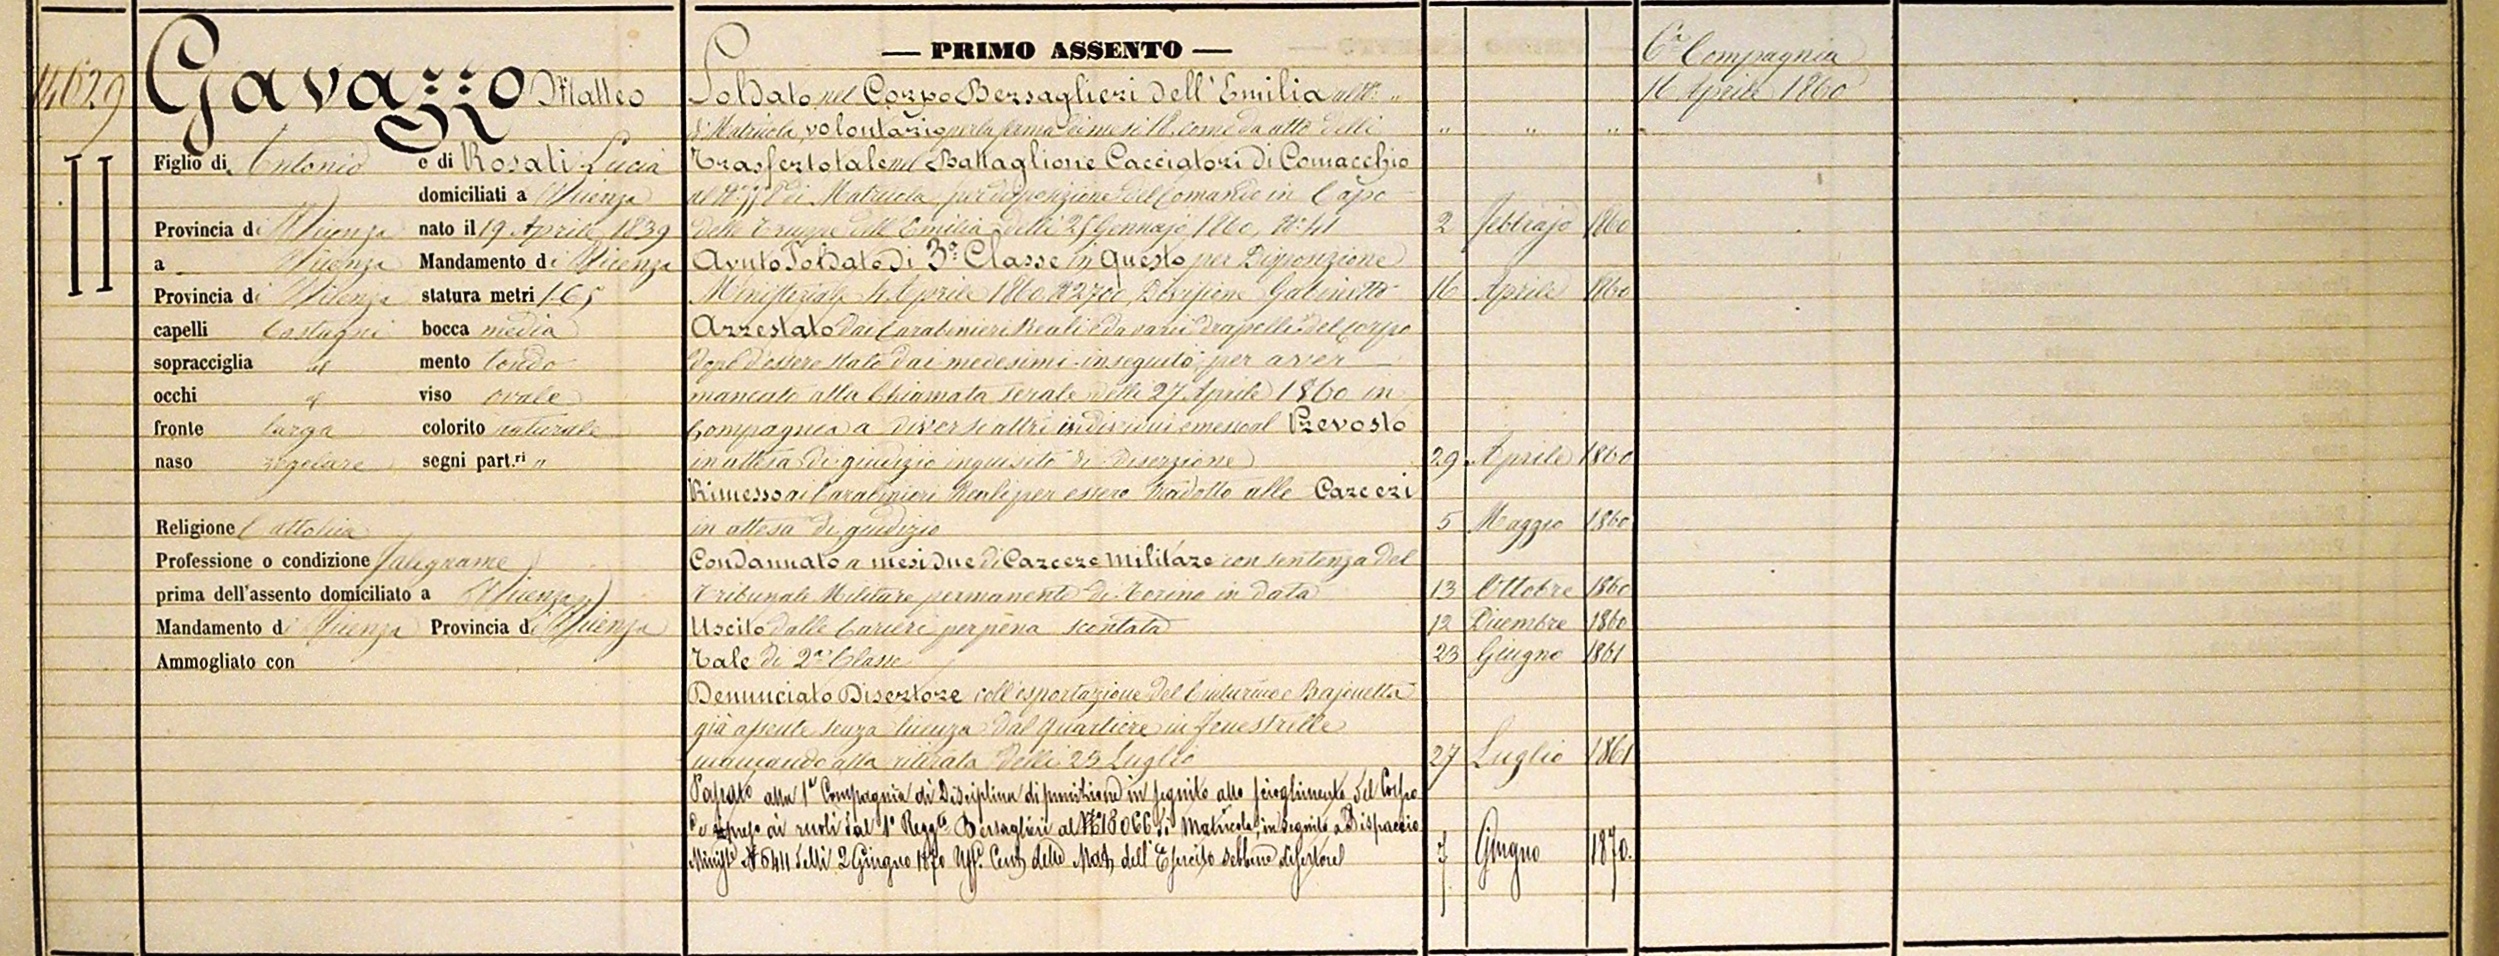 14629
Gavazzo Matteo
II
Figlio di Antonio e di Rosati Lucia
domiciliati a Vicenza
Provincia di Vicenza nato il 19 Aprile 1839
a Vicenza Mandamento di Vicenza
Provincia di Vicenza statura metri 1.65
capelli Castagni bocca media
sopracciglia id mento tondo
occhi id viso ovale
fronte larga colorito naturale
naso regolare segni part.ri "
Religione Cattolica
Professione o condizione Falegname
prima dell'assento domiciliato a Vicenza
Mandamento di Vicenza Provincia di Vicenza
Ammogliato con
— PRIMO ASSENTO —
Soldato nel Corpo Bersaglieri dell'Emilia al N.° "
di Matricola, volontario per la ferma di mesi 18. come da atto delli " " "
Trasferto tale nel Battaglione Cacciatori di Comacchio
al N.° di Matricola per disposizione del Comando in Capo
delle Truppe dell'Emilia delli 25 Gennajo 1860, N.° 41 2 Febbrajo 1860
Avuto Soldato di 3.a Classe in questo per Disposizione
Ministeriale 4 Aprile 1860 N.° 2700 Divisione Gabinetto 16 Aprile 1860
Arrestato dai Carabinieri Reali e da varii drapelli del corpo
dopo d'essere stato dai medesimi inseguito per aver
mancato alla Chiamata serale delli 27 Aprile 1860 in
compagnia a diversi altri individui e messo al Prevosto
in attesa di giudizio inquisito di diserzione 29 Aprile 1860
Rimesso ai Carabinieri Reali per essere tradotto alle Carceri
in attesa di giudizio 5 Maggio 1860
Condannato a mesi due di Carcere Militare con sentenza del
Tribunale Militare permanente di Torino in data 13 Ottobre 1860
Uscito dalle Carceri per pena scontata 12 Dicembre 1860
Tale di 2.a Classe 23 Giugno 1861
Denunciato Disertore coll'esportazione del Cinturino e Bajonetta
già assente senza licenza dal Quartiere in Fenestrelle
mancando alla ritirata delli 23 Luglio 27 Luglio 1861
Passato alla 1a Compagnia di Disciplina di punizione in seguito allo scioglimento del Corpo
ripreso ai ruoli dal 1° Regg.to Bersaglieri al N.° 18066 di Matricola, in seguito a Dispaccio
Minist.e N.° 644 delli 2 Giugno 1870 Uff. Cent. delle Mat. dell'Esercito sebbene disertore 7 Giugno 1870.
6a Compagnia
16 Aprile 1860